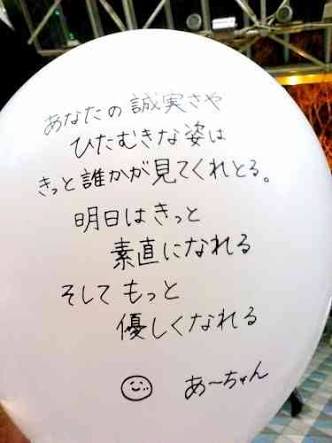 あなたの誠実さや
ひたむきな姿は
きっと誰かが見てくれとる。
明日はきっと
素直になれる
そしてもっと
優しくなれる
あ〜ちゃん